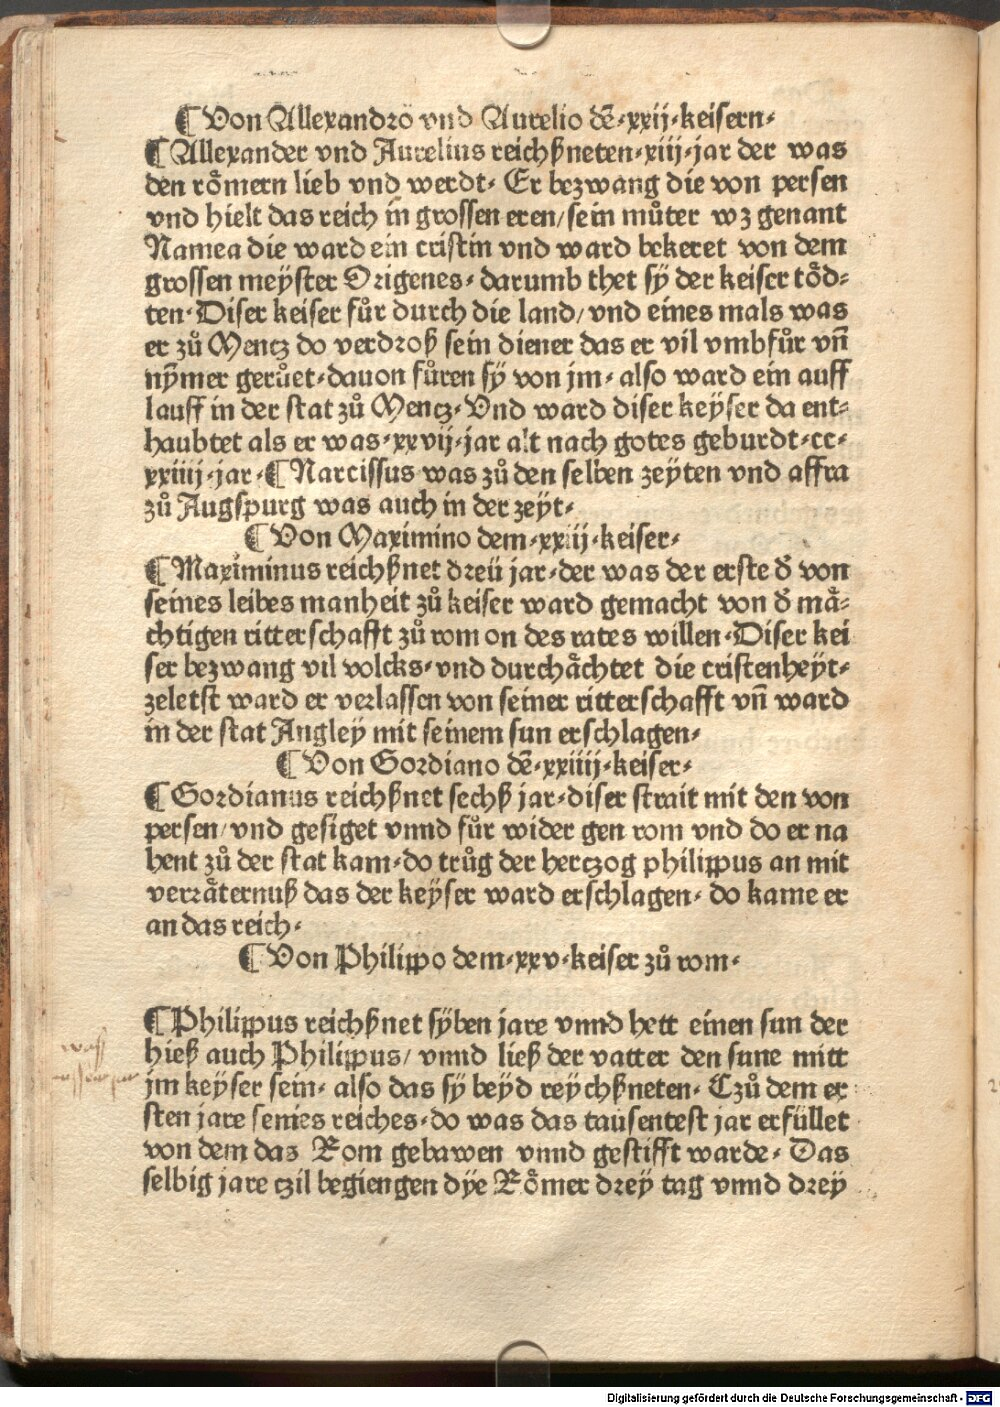 ¶ Von Allexandro vnd Aurelio dẽ·xxij·keisern·
¶ Allexander vnd Aurelius reichßneten·xiij·jar der was
den roͤmern lieb vnd werdt· Er bezwang die von persen
vnd hielt das reich in grossen eren/sein muͦter wz genant
Namea die ward ein cristin vnd ward bekeret von dem
grossen meÿster Origenes· darumb thet sÿ der keiser toͤd⸗
ten·Diser keiser fuͦr durch die land/vnd eines mals was
er zuͦ Mentz do verdroß sein diener das er vil vmbfuͦr vñ
nÿmer geruͦet·dauon fuͦren sÿ von jm· also ward ein auff
lauff in der stat zuͦ Mentz· Vnd ward diser keÿser da ent⸗
haubtet als er was·xxvij·jar alt nach gotes geburdt·cc·
xxiiij·jar·¶ Narcissus was zuͦ den selben zeÿten vnd affra
zuͦ Augspurg was auch in der zeÿt·
¶ Von Maximino dem·xxiij·keiser·
¶ Maximinus reichßnet dreü jar·der was der erste d̕ von
seines leibes manheit zuͦ keiser ward gemacht von d̕ maͤ⸗
chtigen ritterschafft zuͦ rom on des rates willen·Diser kei
ser bezwang vil volcks·vnd durchaͤchtet die cristenheÿt·
zeletst ward er verlassen von seiner ritterschafft vñ ward
in der stat Angleÿ mit seinem sun erschlagen·
¶ Von Gordiano dẽ·xxiiij·keiser·
¶ Gordianus reichßnet sechß jar·diser strait mit den von
persen/vnd gesiget vnnd fuͦr wider gen rom vnd do er na
hent zuͦ der stat kam·do truͦg der hertzog philippus an mit
verraͤternuß das der keÿser ward erschlagen· do kame er
an das reich·
¶ Von Philippo dem·xxv·keiser zuͦ rom·
¶ Philippus reichßnet sÿben jare vnnd hett einen sun der
hieß auch Philippus/ vnnd ließ der vatter den sune mitt
jm keÿser sein· also das sÿ beÿd reÿchßneten· Czuͦ dem er
sten jare seines reiches·do was das tausentest jar erfüllet
von dem das Rom gebawen vnnd gestifft warde· Das
selbig jare czil begiengen dÿe Roͤmer dreÿ tag vnnd dreÿ
Digitalisierung gefördert durch die Deutsche Forschungsgemeinschaft - DFG